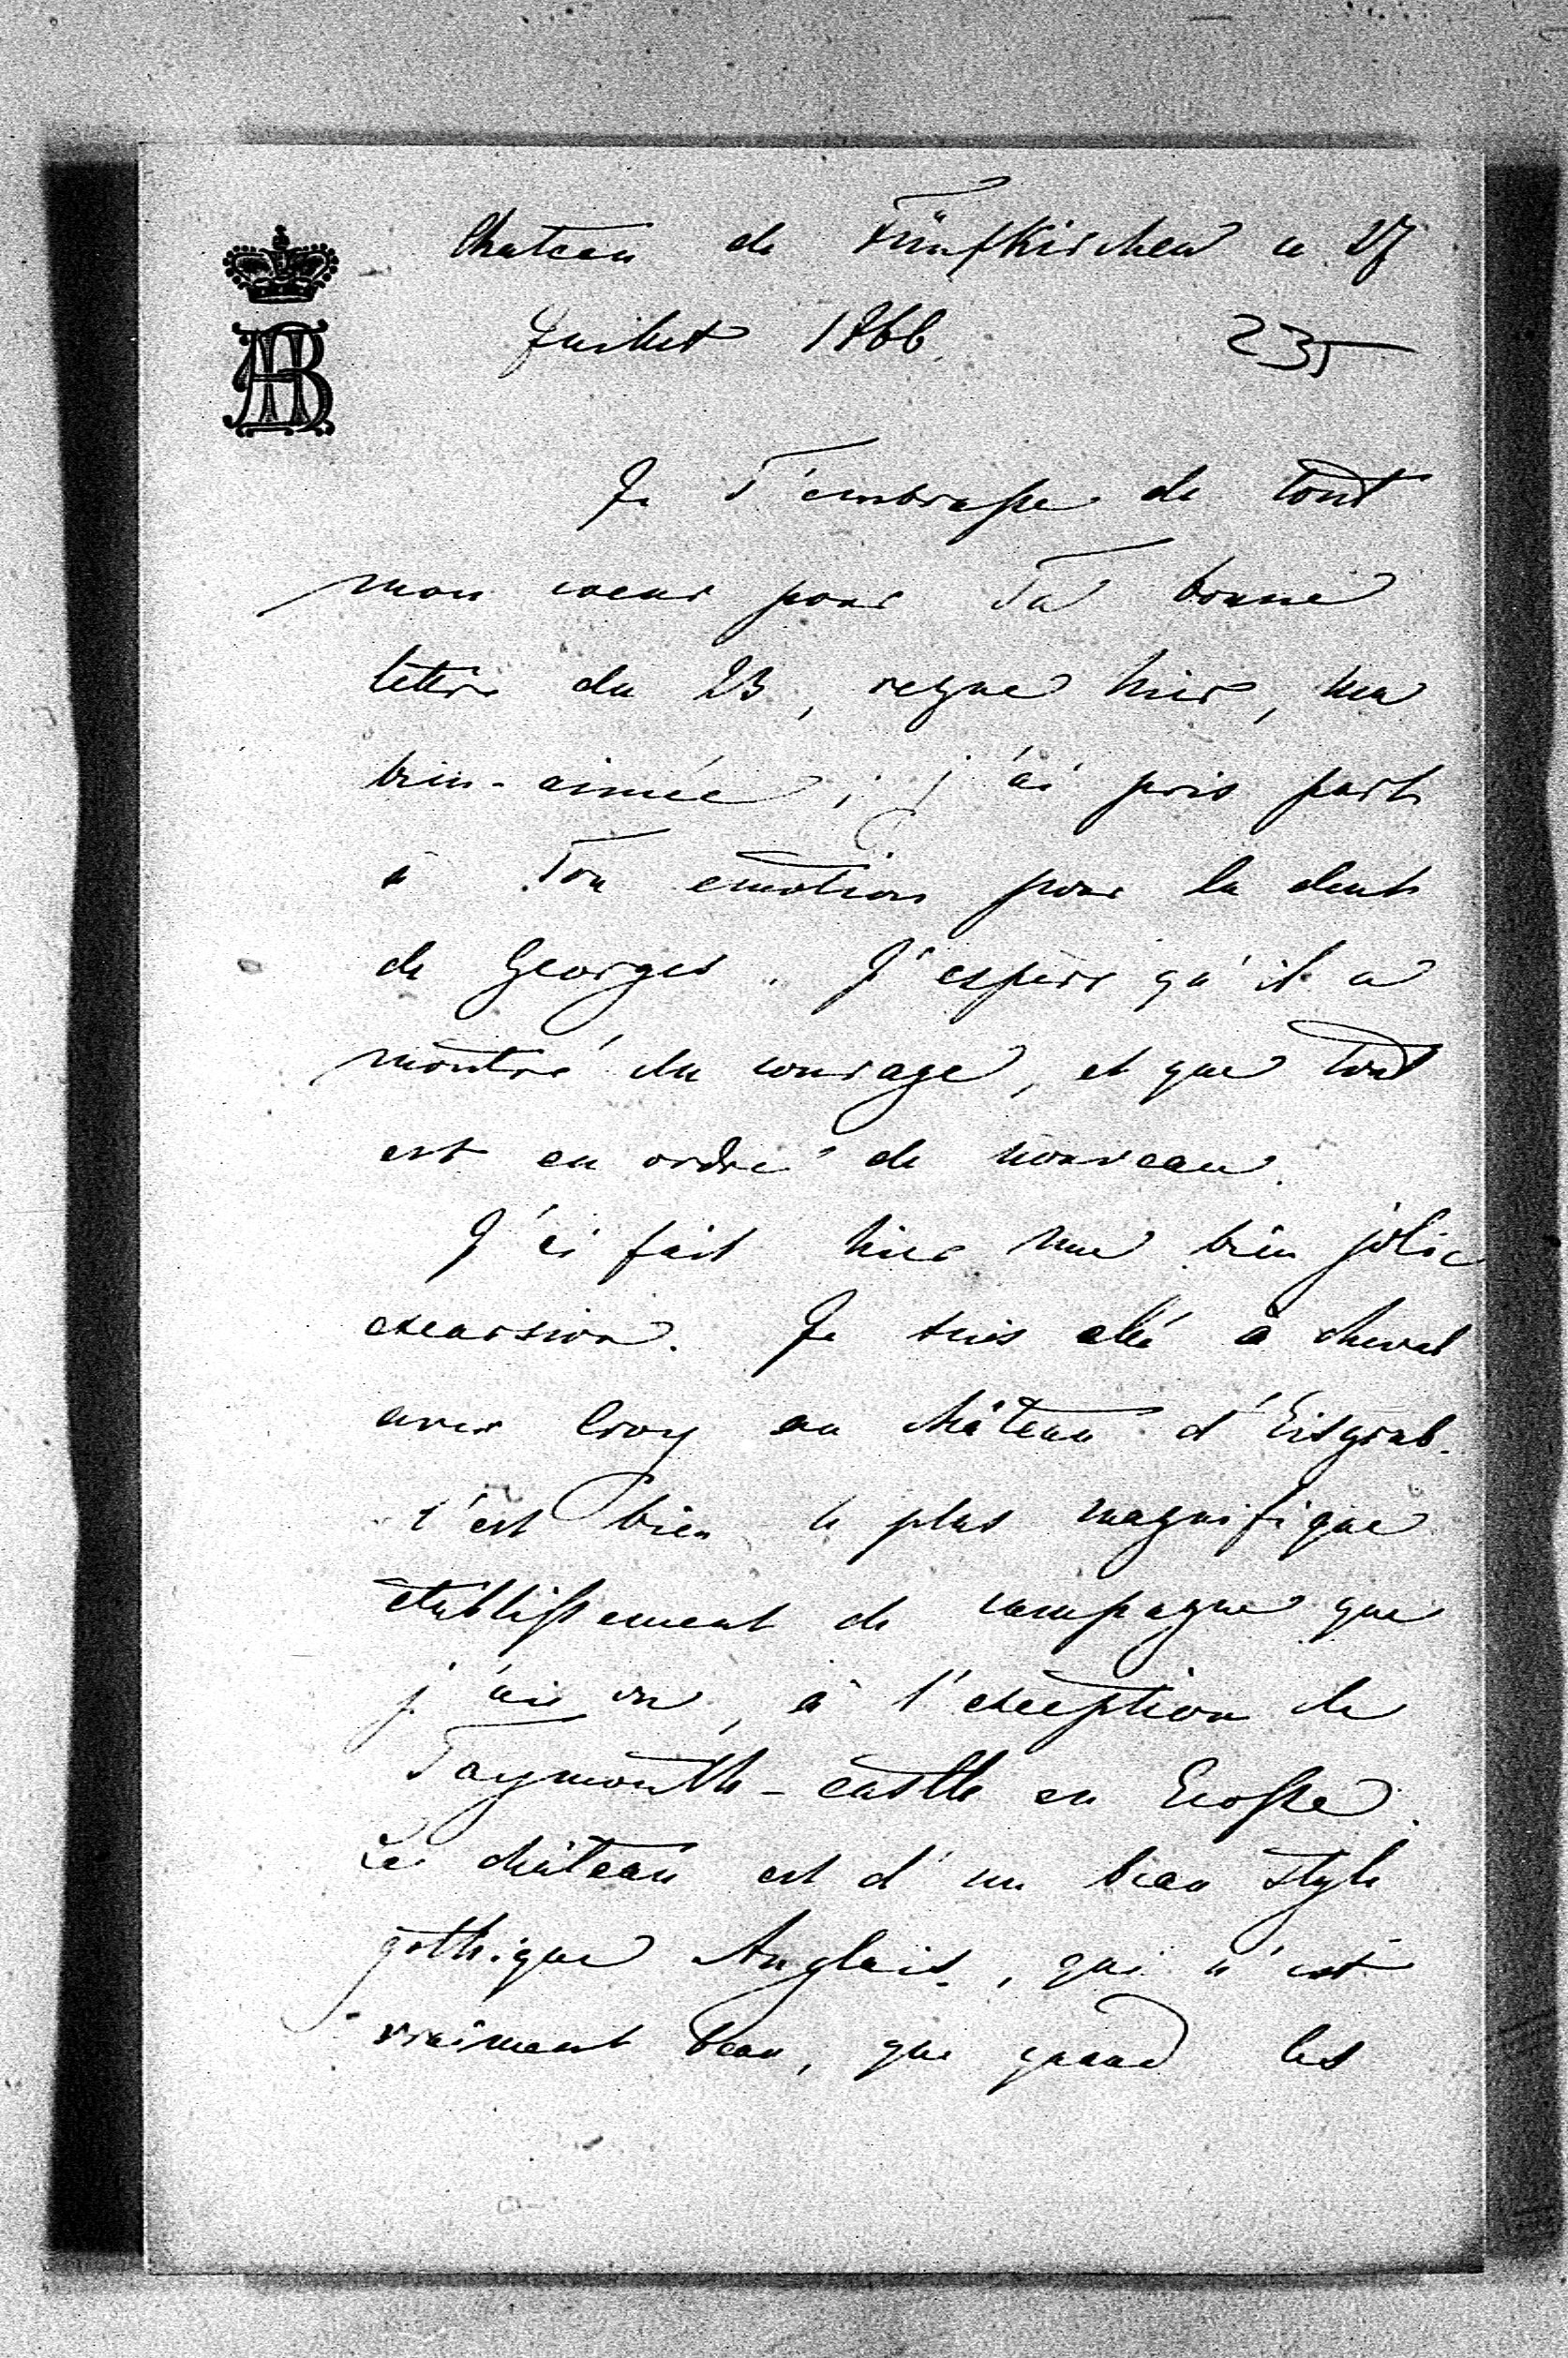 Chateau de Fünfkirchen ce 27
Juillet 1866.
235
Je T'embrasse de tout
mon coeur pour Ta bonne
lettre du 23, reçue hier, ma
bien-aimée; j'ai pris part
à Ton emotion pour la dent
de Georges. J'espère qu'il a
montré du courage, et que tout
est en ordre de nouveau.
J'ai fait hier une bien jolie
excursion. Je suis allé à cheval
avec Croy au château d'Eisgrub.
c'est bien le plus magnifique
établissement de campagne que
j'aie vu, à l'exception de
Taymouth-castle en Ecosse.
Le château est d'un beau style
gothique Anglais, qui n'est
vraiment beau, que quand les